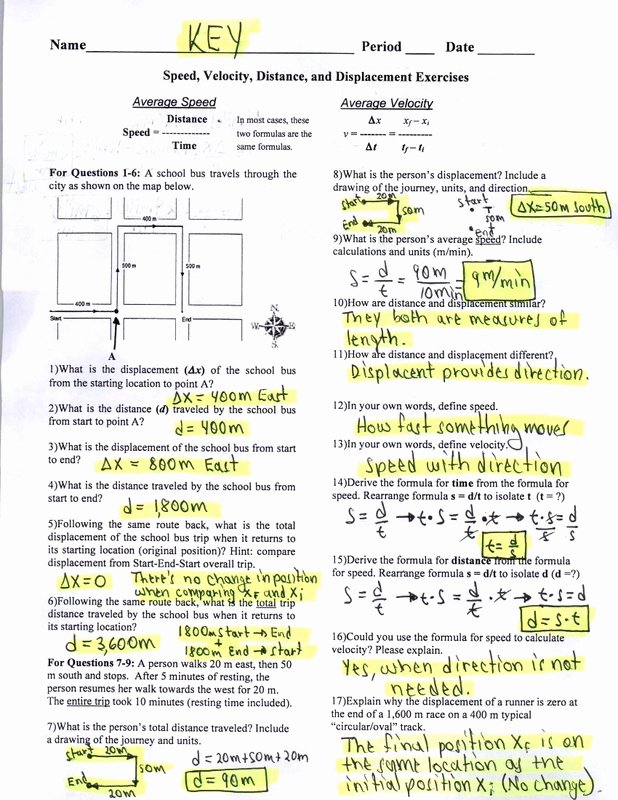 Name KEY Period ____ Date ________
Speed, Velocity, Distance, and Displacement Exercises
Average Speed
Distance
Speed = -------------
Time
In most cases, these
two formulas are the
same formulas.
Average Velocity
Δx xf – xi
v = ------- = ---------
Δt tf – ti
For Questions 1-6: A school bus travels through the
city as shown on the map below.
400 m
500 m
500 m
400 m
Start
End
N
W
E
S
A
1)What is the displacement (Δx) of the school bus
from the starting location to point A?
Δx = 400m East
2)What is the distance (d) traveled by the school bus
from start to point A?
d = 400m
3)What is the displacement of the school bus from start
to end?
Δx = 800m East
4)What is the distance traveled by the school bus from
start to end?
d = 1,800m
5)Following the same route back, what is the total
displacement of the school bus trip when it returns to
its starting location (original position)? Hint: compare
displacement from Start-End-Start overall trip.
Δx=0 There's no change in position
when comparing xF and xi
6)Following the same route back, what is the total trip
distance traveled by the school bus when it returns to
its starting location?
d = 3,600m
1800m Start → End
+
1800m End → Start
For Questions 7-9: A person walks 20 m east, then 50
m south and stops. After 5 minutes of resting, the
person resumes her walk towards the west for 20 m.
The entire trip took 10 minutes (resting time included).
7)What is the person's total distance traveled? Include
a drawing of the journey and units.
Start 20m
50m
End
20m
d = 20m+50m+20m
d = 90m
8)What is the person's displacement? Include a
drawing of the journey, units, and direction.
Start 20m
50m
End
20m
start
50m
end
Δx=50m south
9)What is the person's average speed? Include
calculations and units (m/min).
S = d/t = 90m/10min = 9m/min
10)How are distance and displacement similar?
They both are measures of
length.
11)How are distance and displacement different?
Displacent provides direction.
12)In your own words, define speed.
How fast something moves
13)In your own words, define velocity.
Speed with direction
14)Derive the formula for time from the formula for
speed. Rearrange formula s = d/t to isolate t (t = ?)
S = d/t → t·S = d/t·t → t·s/s = d/s
t = d/s
15)Derive the formula for distance from the formula
for speed. Rearrange formula s = d/t to isolate d (d =?)
S = d/t → t·S = d/t·t → t·S=d
d = s·t
16)Could you use the formula for speed to calculate
velocity? Please explain.
Yes, when direction is not
needed.
17)Explain why the displacement of a runner is zero at
the end of a 1,600 m race on a 400 m typical
"circular/oval" track.
The final position XF is on
the same location as the
initial position Xi (No change).